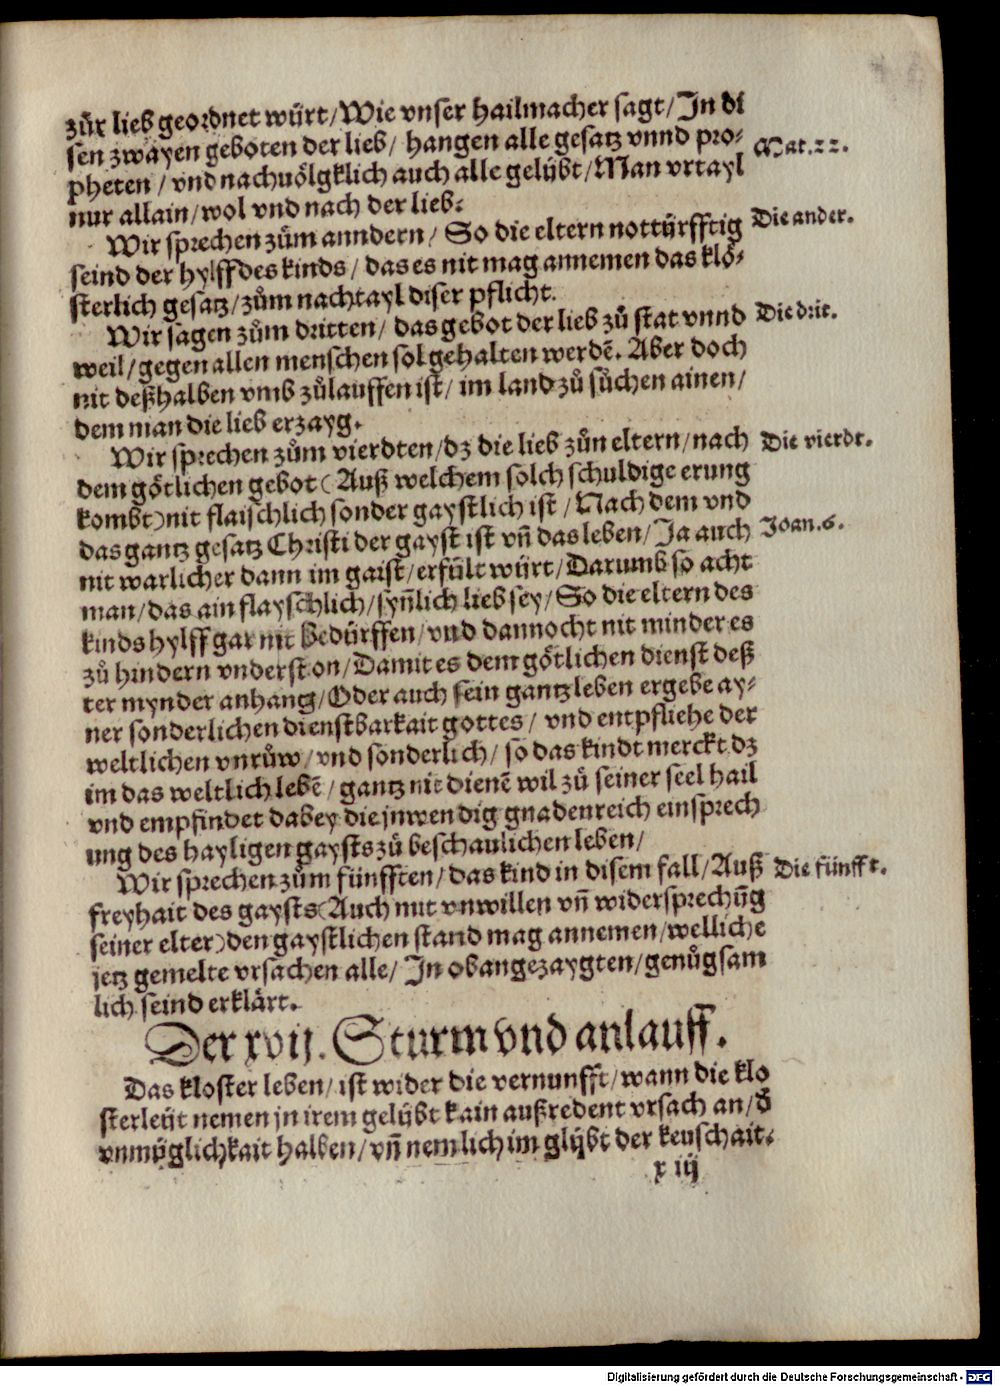 zůr lieb geordnet würt/ Wie vnser hailmacher sagt/ In di
sen zwayen geboten der lieb/ hangen alle gesatz vnnd pro-
Mat.22.
pheten/ vnd nachuölgklich auch alle gelübt/ Man vrtayl
nur allain/ wol vnd nach der lieb.
Wir sprechen zům anndern/ So die eltern nottürfftig
Die ander.
seind der hylff des kinds/ das es nit mag annemen das klö-
sterlich gesatz/ zům nachtayl diser pflicht.
Wir sagen zům dritten/ das gebot der lieb zů stat vnnd
Die drit.
weil/ gegen allen menschen sol gehalten werdē. Aber doch
nit deßhalben vmb zůlauffen ist/ im land zů sůchen ainen/
dem man die lieb erzayg.
Wir sprechen zům vierdten/ dz die lieb zůn eltern/ nach
Die vierdt.
dem götlichen gebot (Auß welchem solch schuldige erung
kombt) nit flaischlich sonder gaystlich ist/ Nach dem vnd
das gantz gesatz Christi der gayst ist vñ das leben/ Ja auch
Joan.6.
nit warlicher dann im gaist/ erfült würt/ Darumb so acht
man/ das ain flayschlich/ syñlich lieb sey/ So die eltern des
kinds hylff gar nit bedürffen/ vnd dannocht nit minder es
zů hindern vnderston/ Damit es dem götlichen dienst deß
ter mynder anhang/ Oder auch sein gantz leben ergebe ay-
ner sonderlichen dienstbarkait gottes/ vnd entpfliehe der
weltlichen vnrůw/ vnd sonderlich/ so das kindt merckt dz
im das weltlich lebē/ gantz nit dienē wil zů seiner seel hail
vnd empfindet dabey die jnwendig gnadenreich einsprech
ung des hayligen gaysts zů beschaulichen leben/
Wir sprechen zům fünfften/ das kind in disem fall/ Auß
Die fünfft.
freyhait des gaysts (Auch mit vnwillen vñ widersprechūg
seiner elter) den gaystlichen stand mag annemen/ welliche
jetz gemelte vrsachen alle/ In obangezaygten/ genůgsam
lich seind erklärt.
Der xvij. Sturm vnd anlauff.
Das kloster leben/ ist wider die vernunfft/ wann die klo
sterleüt nemen jn irem gelübt kain außredent vrsach an/ ď
vnmüglichkait halben/ vñ nemlich im glübt der keuschait.
x iij
Digitalisierung gefördert durch die Deutsche Forschungsgemeinschaft - DFG